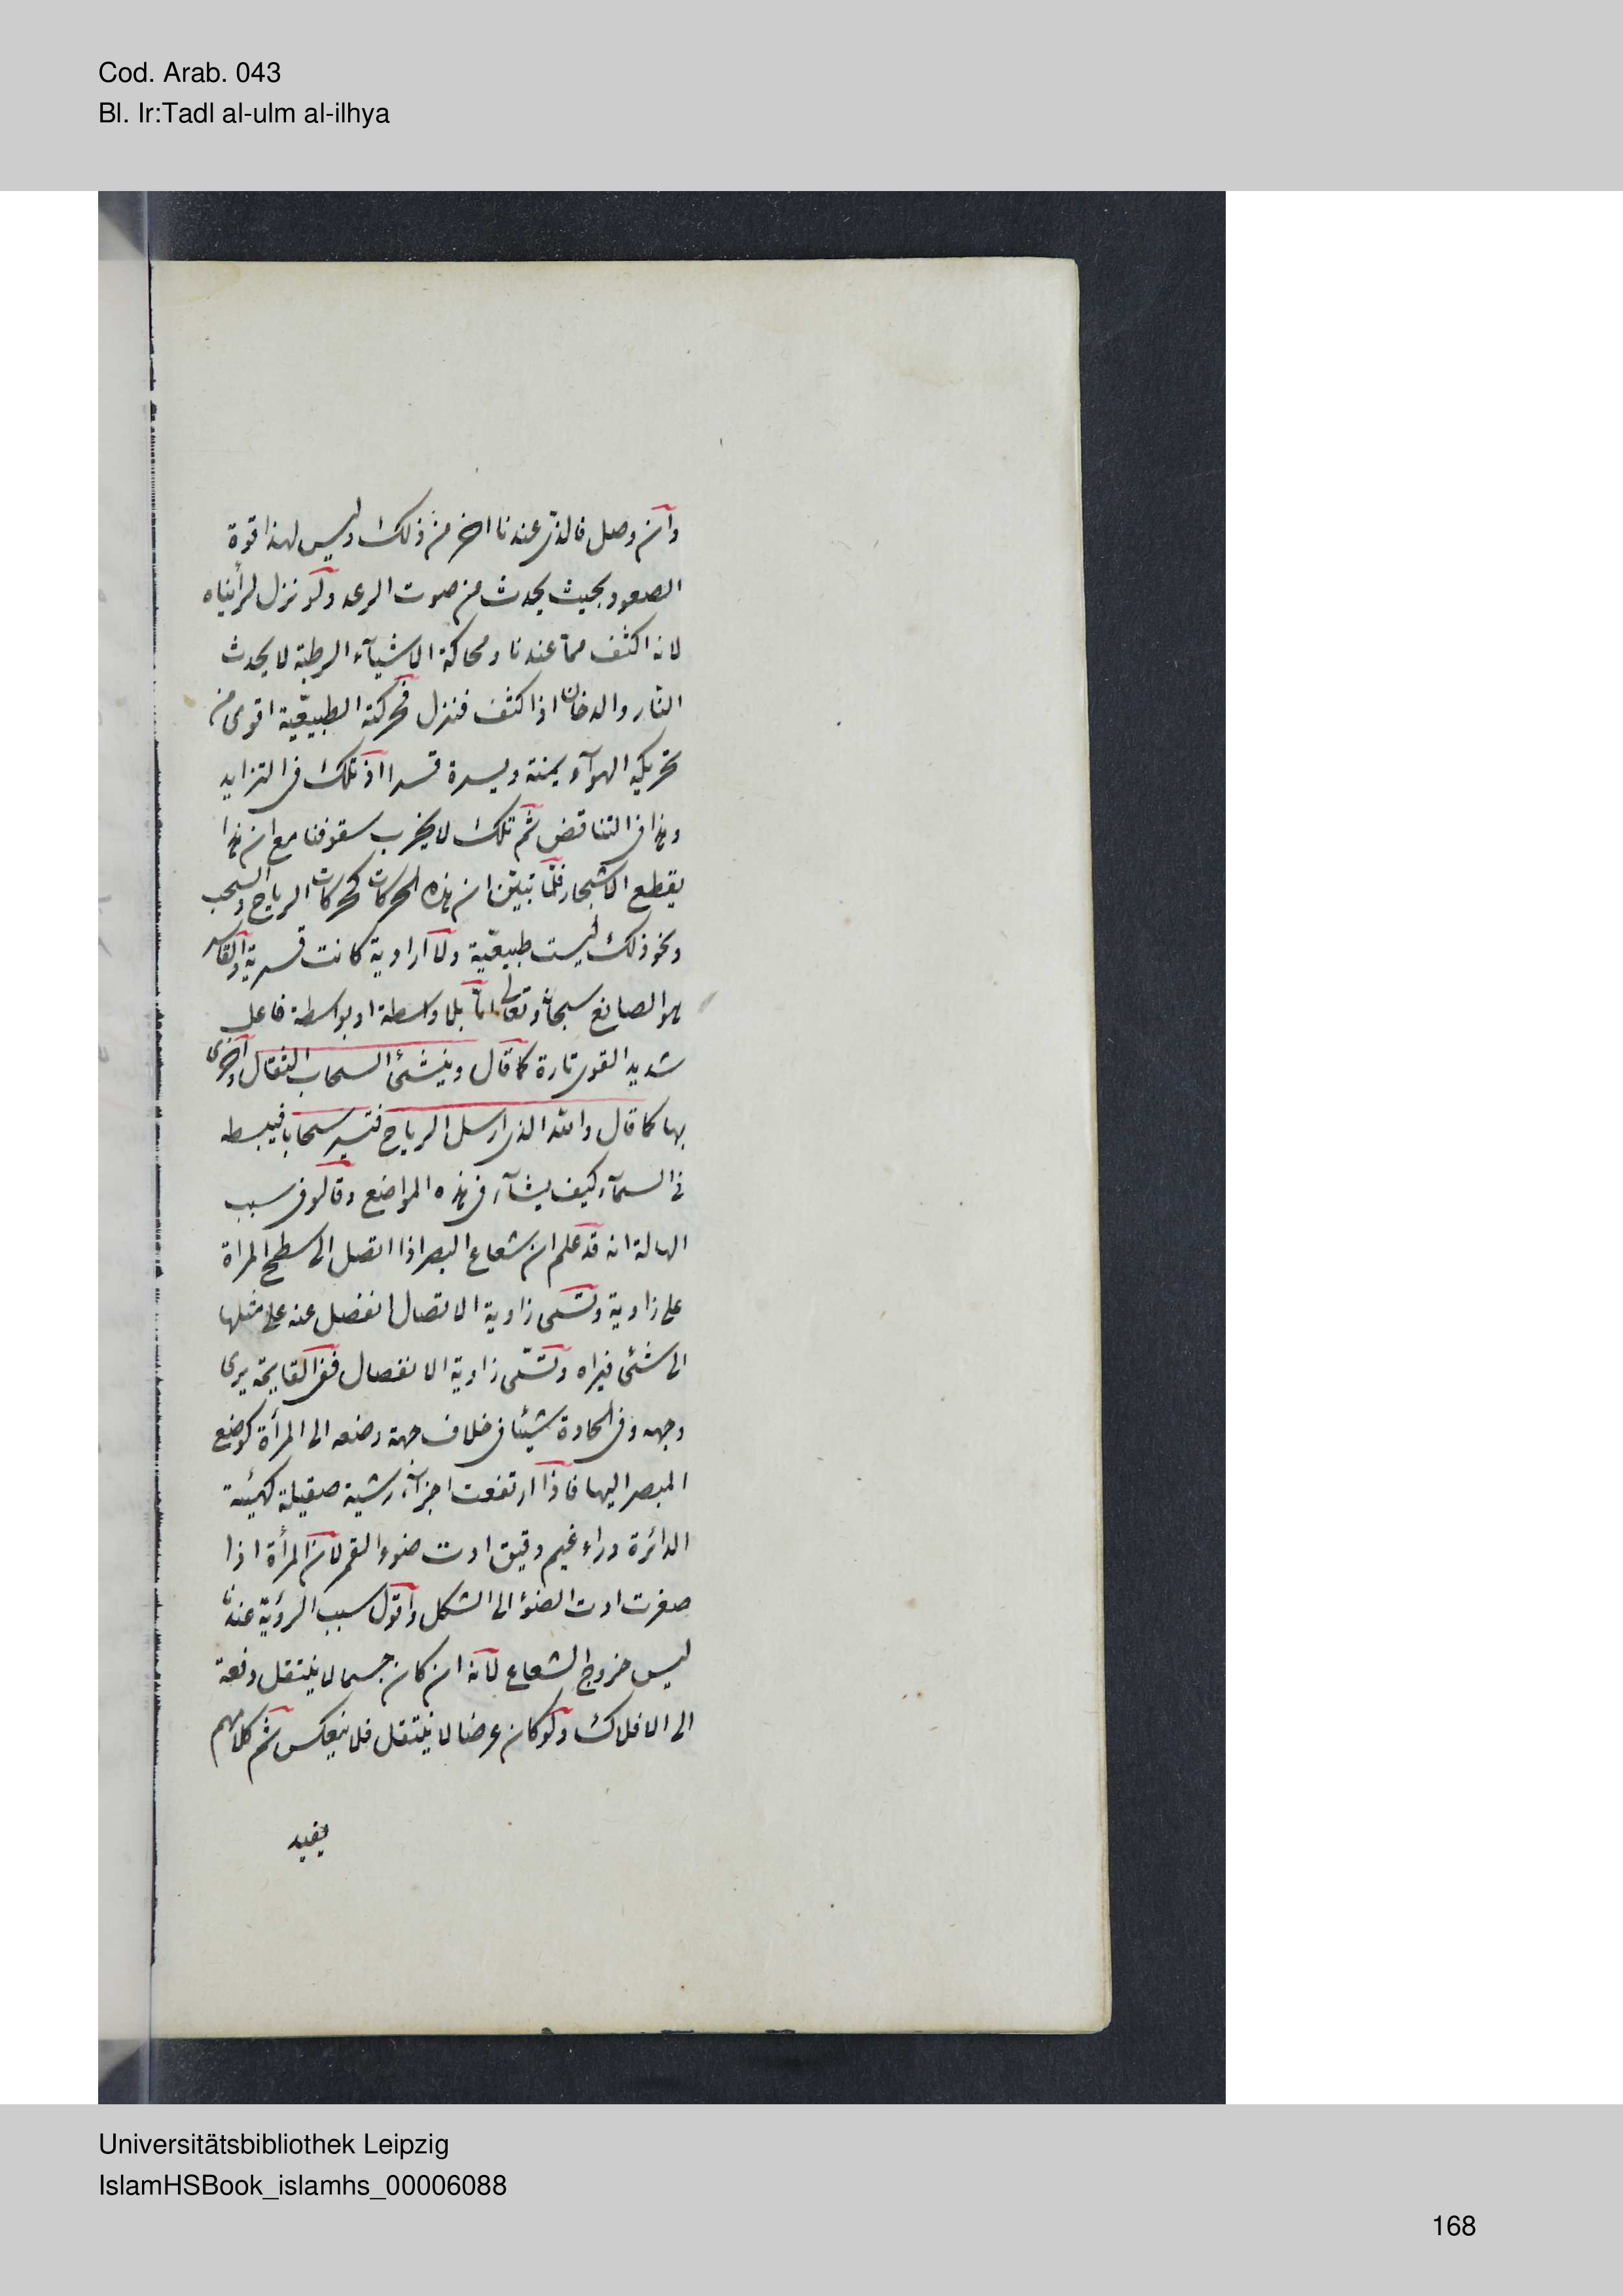 Cod. Arab. 043
Bl. Ir:Tadl al-ulm al-ilhya
وان وصل فالذى عندنا اخر من ذلك وليس لهذا قوة
الصعود بحيث يحدث من صوت الرعد ولو نزل لرأيناه
لانه اكثف مما عندنا ومحاكة الاشيآء الرطبة لا يحدث
النار والدخان اذا كثف فنزل فحركته الطبيعية اقوى من
تحريكه الهوآء يمنة ويسرة قسرا اذ تلك فى التزايد
وهذا فى التناقض ثم تلك لا يخرب سقوفنا مع ان هذا
يقطع الاشجار فلما تبين ان هذه الحركات كحركات الرياح والسحب
ونحو ذلك ليست طبيعية ولا ارادية كانت قسرية والقاسر
هو الصانع سبحانه وتعالى اما بلا واسطة او بواسطة فاعل
شديد القوى تارة كما قال وينشئ السحاب الثقال واخرى
بها كما قال والله الذى ارسل الرياح فتثير سحابا فيبسطه
فى السمآء كيف يشآء فى هذه المواضع وقالو فى سبب
الهالة انه قد علم ان شعاع البصر اذا اتصل الى سطح المراة
على زاوية وتسمى زاوية الاتصال انفصل عنه على مثلها
الى شئى فيراه وتسمى زاوية الانفصال ففى القايمة يرى
وجهه وفى الحادة شيئا فى خلاف جهة وضعه الى المرأة كوضع
المبصر اليها فاذا ارتفعت اجزآء رشية صقيلة كهيئة
الدائرة وراء غيم رقيق ادت ضوء القمر لان المرأة اذا
صغرت ادت الضوٴ الى الشكل واقول سبب الرؤية عندنا
ليس خروج الشعاع لانه ان كان جسما لا ينتقل دفعة
الى الافلاك ولو كان عرضا لا ينتقل فلا ينعكس ثم كلامهم
يفيد
Universitätsbibliothek Leipzig
IslamHSBook_islamhs_00006088
168